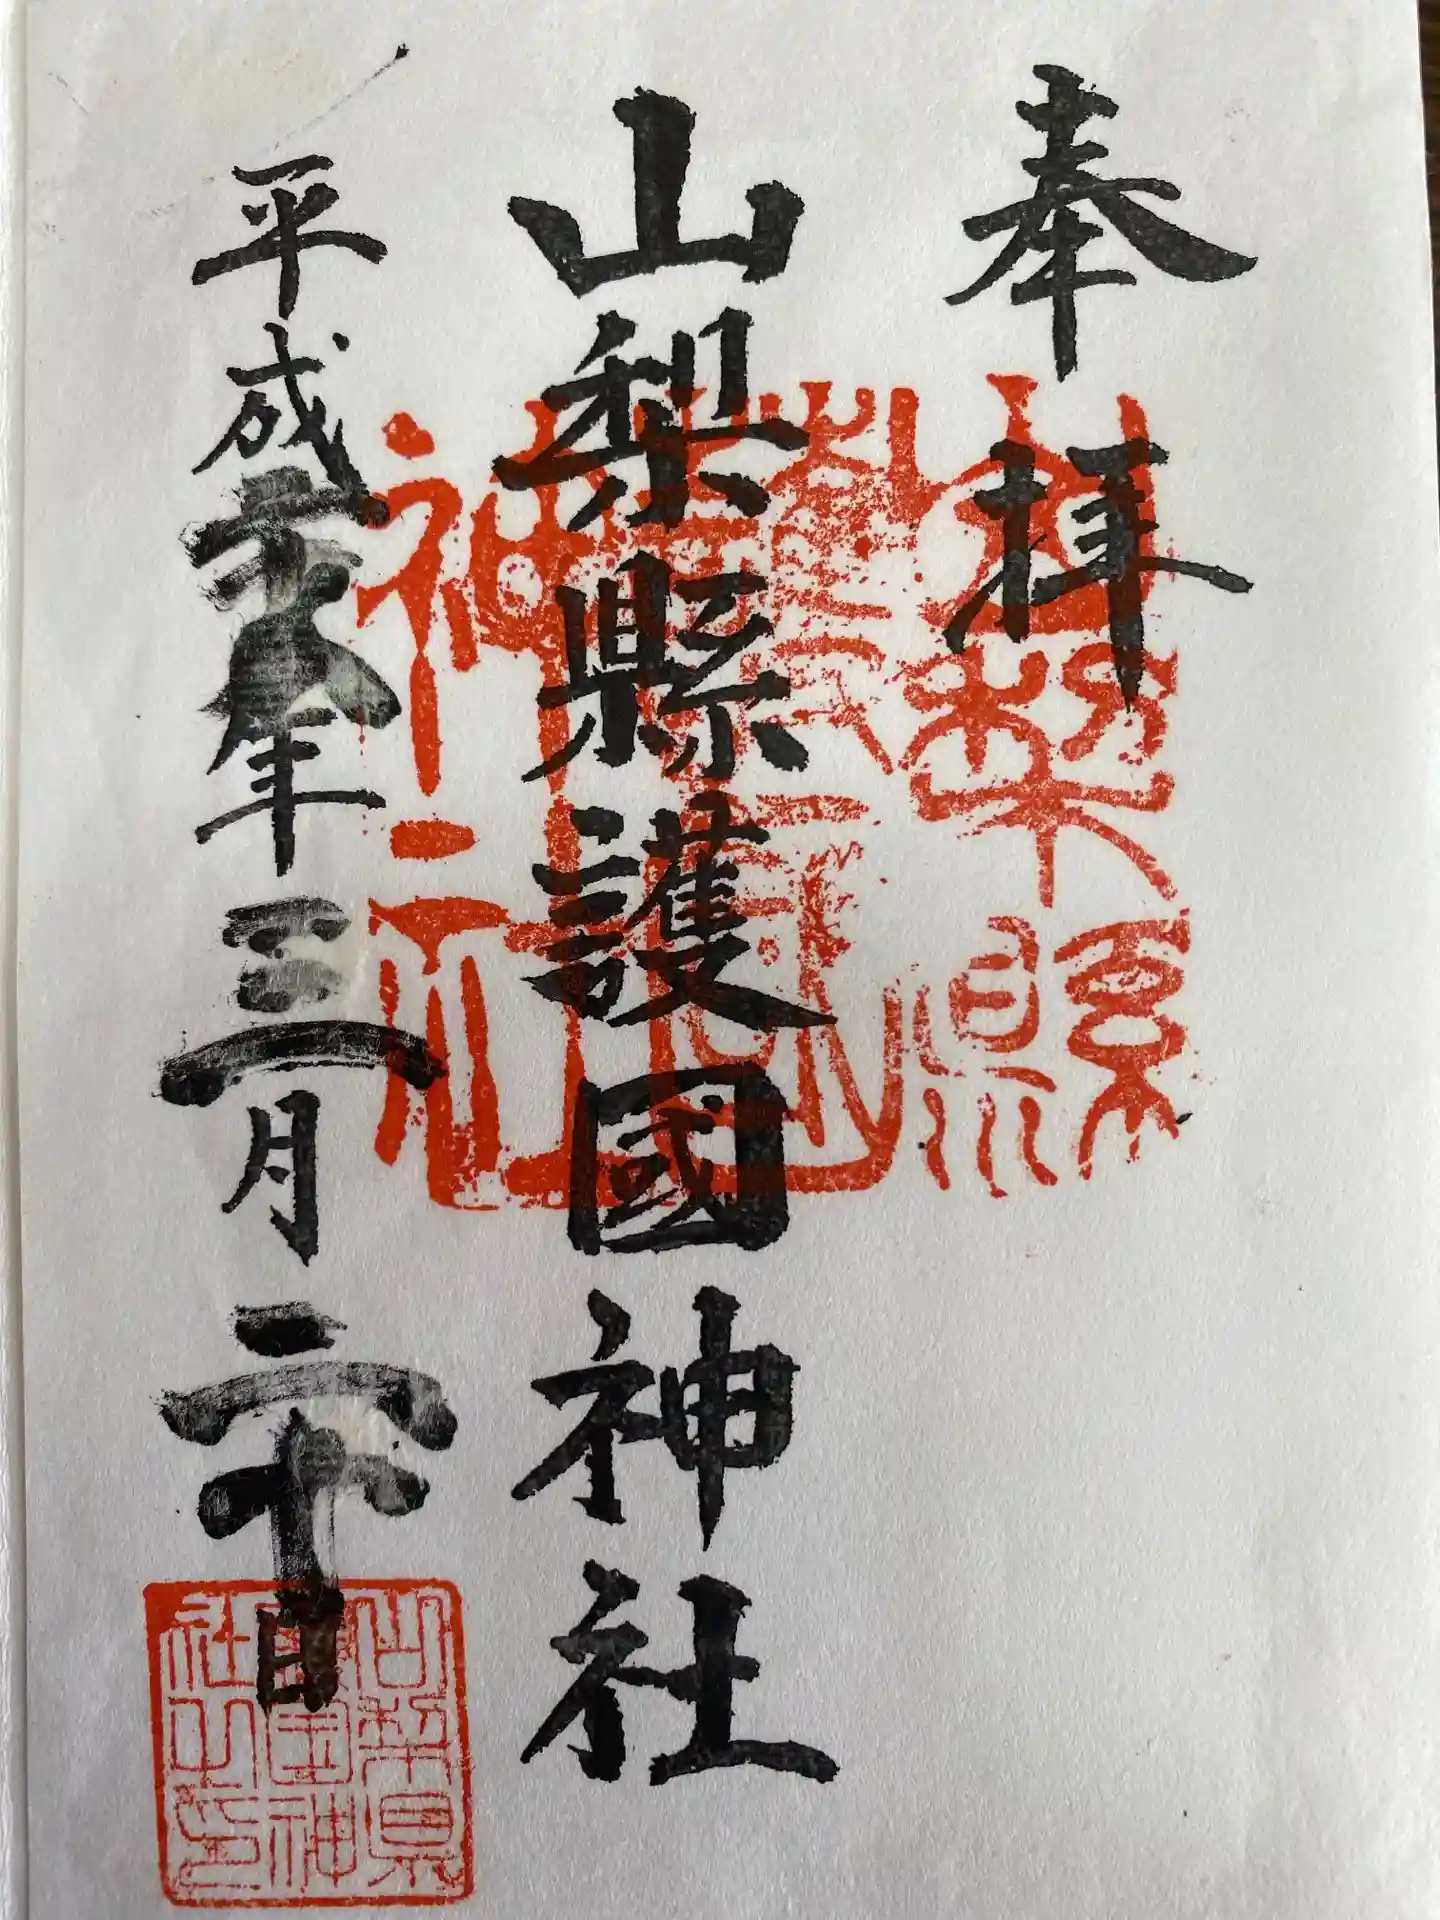 奉拝
山梨縣護國神社
平成年三月二十日
山梨縣護國神社
山梨県護国神社之印